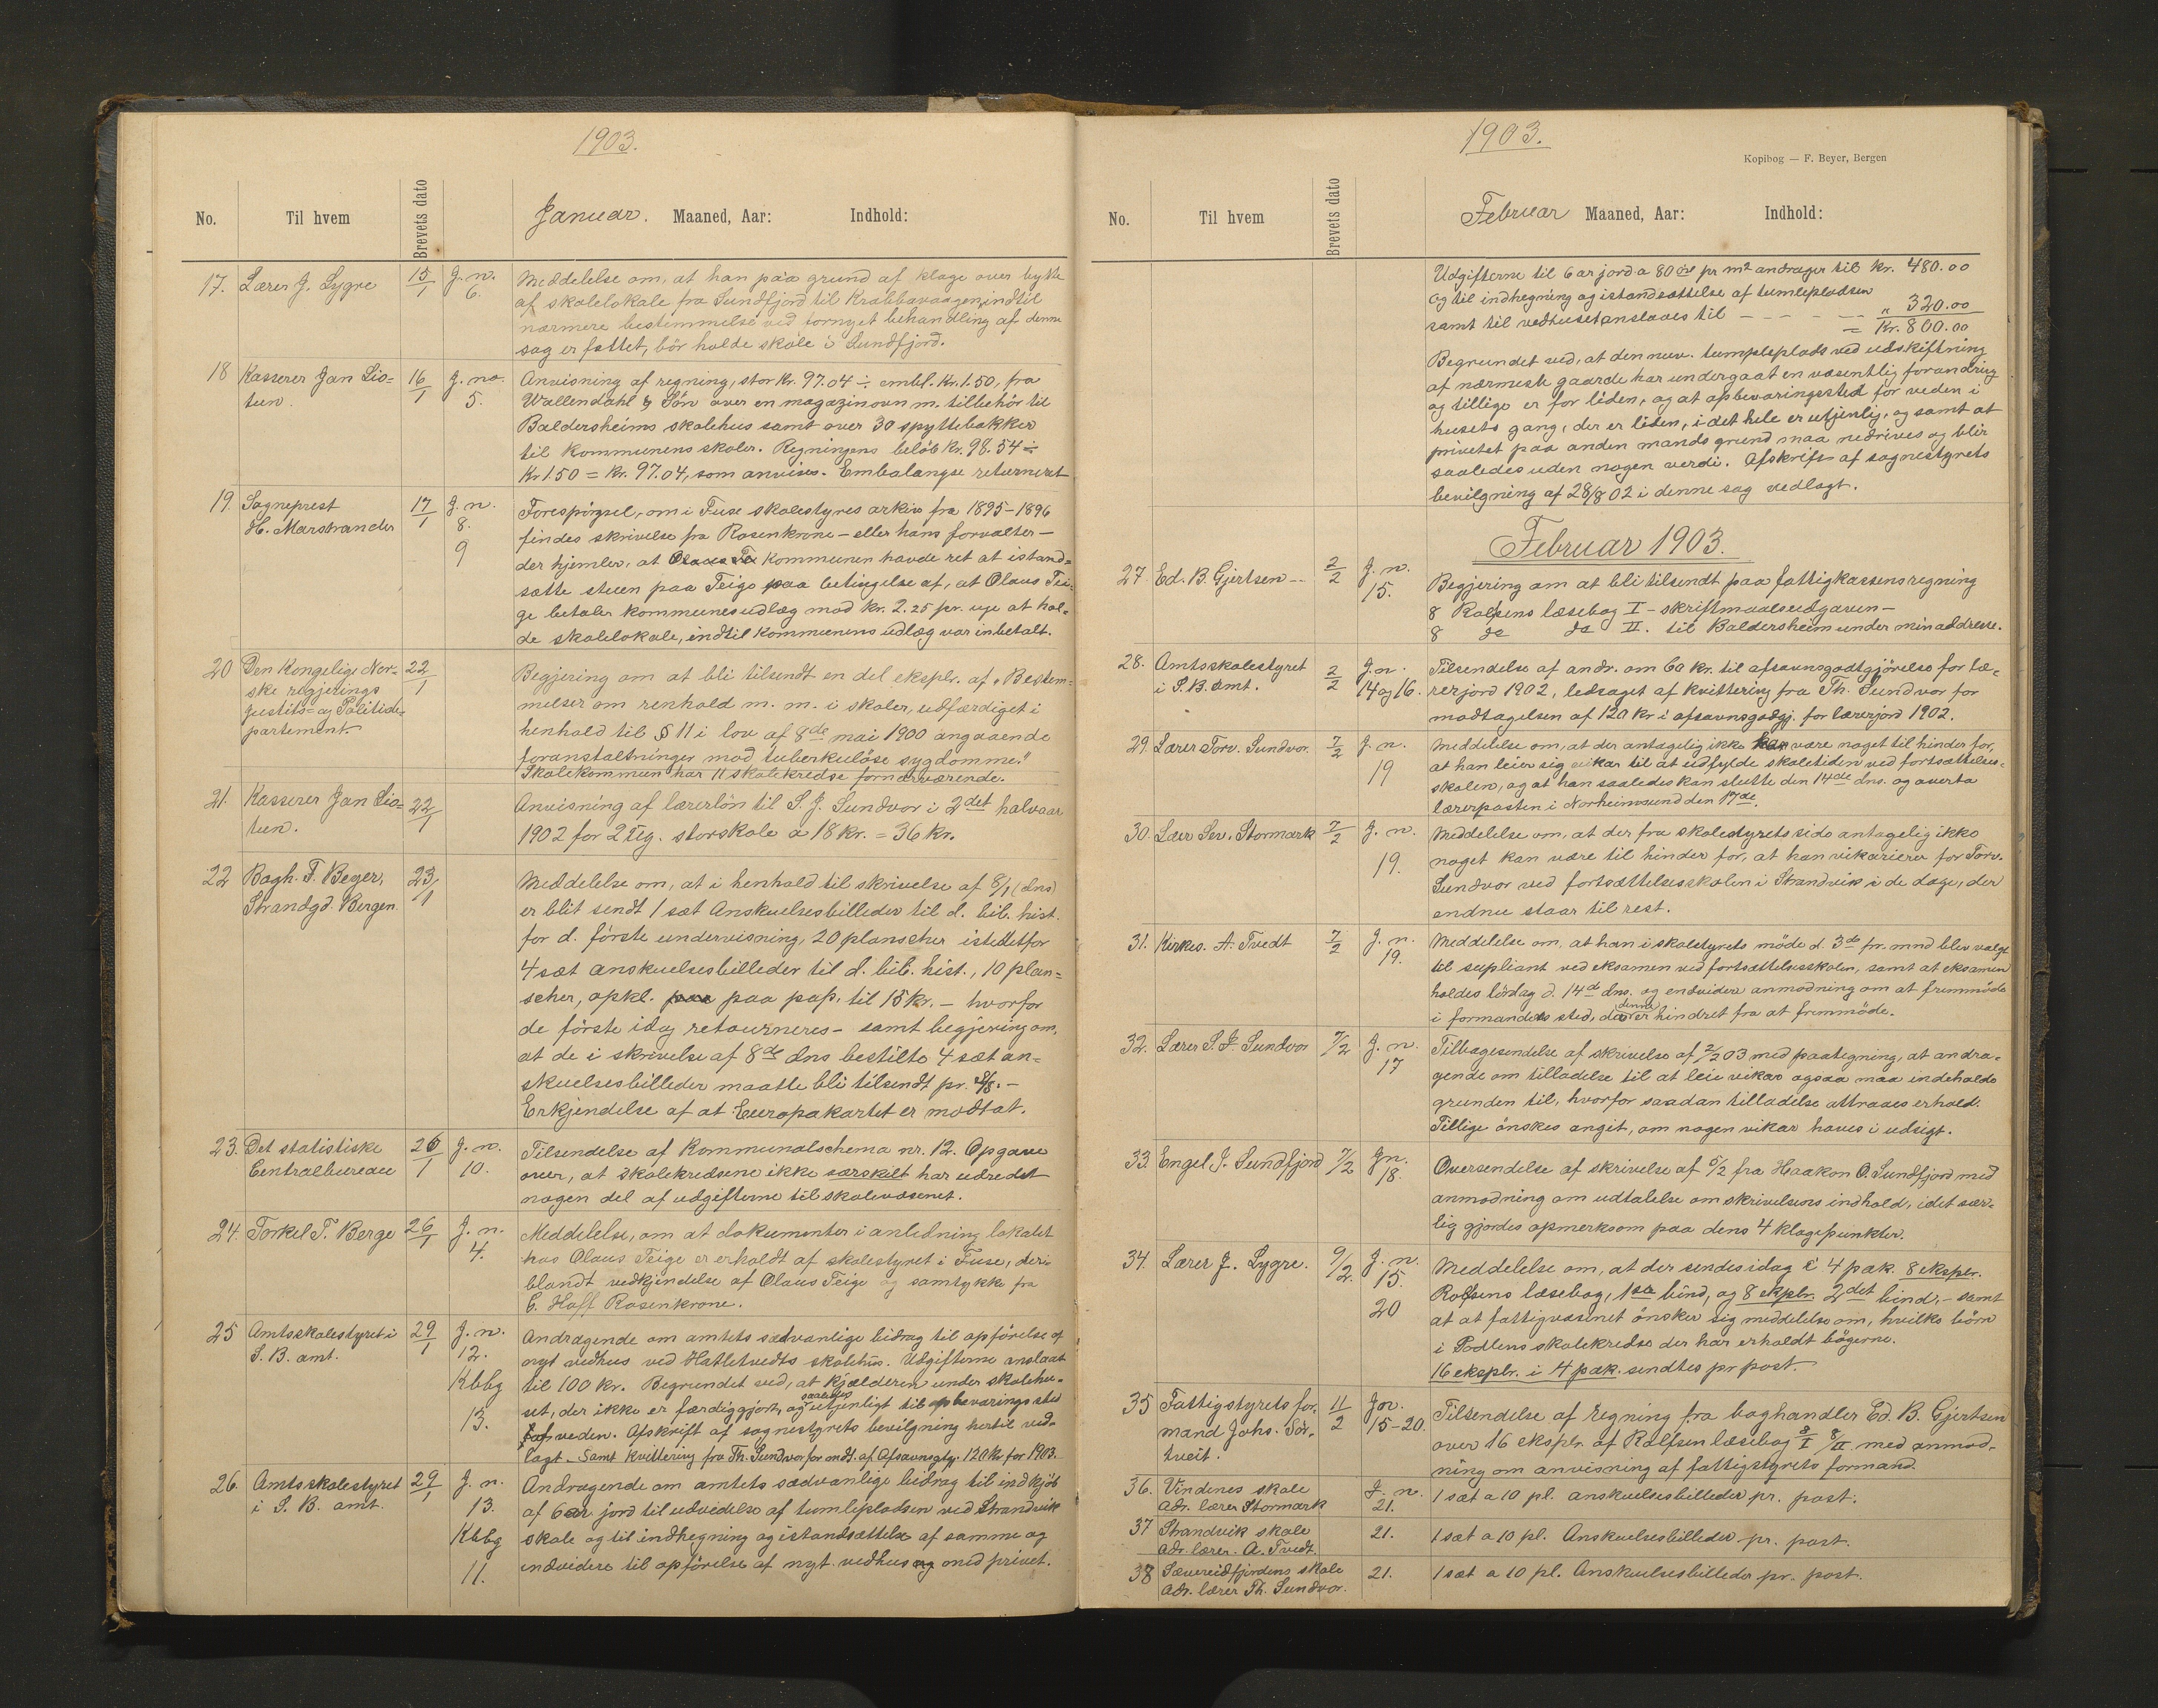 1903.
No. Til hvem Brevets dato Januar. Maaned, Aar: Indhold:
17. Lærer J. Lygre 15/1 J. n. 6. Meddelelse om, at han paa grund af klage over bytte
af skolelokale fra Sundfjord til Krabbavaagen, indtil
nærmere bestemmelse ved fornyet behandling af denne
sag er fattet, bör holde skole i Sundfjord.
18 Kasserer Jan Lio= 16/1 J. no. 5. Anvisning af regning, stor Kr. 97.04 ÷ embl. Kr. 1.50, fra
tun. Wallendahl & Sön over en magazinovn m. tilbehör til
Baldersheims skolehus samt over 30 spyttebakker
til kommunens skoler. Regningens belöb Kr. 98.54 ÷
Kr 1.50 = Kr. 97.04, som anvises. Embalangse returneret
19. Sogneprest 17/1 J. n. 8. Forespörgsel, om i Fuse skolestyres arkiv fra 1895-1896
H. Marstrander 9 findes skrivelse fra Rosenkrone - eller hans forvalter -
der hjemler, at Kommunen havde ret at istand=
sætte stuen paa Teige paa betingelse af, at Olaus Tei=
ge betaler kommunes udlæg mod kr. 2.25 pr. uge at hol=
de skolelokale, indtil kommunens udlæg var inbetalt.
20 Den Kongelige Nor= 22/1 Begjering om at bli tilsendt en del eksplr. af „Bestem=
ske regjerings melser om renhold m. m. i skoler, udfærdiget i
Justits= og Politide= henhold til § 11 i lov af 8de mai 1900 angaaende
partement. foranstaltninger mod tuberkulöse sygdomme."
Skolekommun har 11 skolekredse fornærværende.
21. Kasserer Jan Lio= 22/1 Anvisning af lærerlön til S. J. Sundvor i 2det halvaar
tun. 1902 for 2 Ug. storskole a 18 kr. = 36 kr.
22 Bogh. F. Beyer, 23/1 Meddelelse om, at i henhold til skrivelse af 8/1 (dns)
Strandgd. Bergen. er blit sendt 1 sæt Anskuelsesbilleder til d. bib. hist.
for d. förste undervisning, 20 planscher istedetfor
4 sæt anskuelsesbilleder til d. bib. hist., 10 plan=
scher, opkl. paa pap. til 15 kr. - hvorfor
de förste idag retourneres - samt begjering om,
at de i skrivelse af 8de dns bestilte 4 sæt an=
skuelsesbilleder maatte bli tilsendt pr.
Erkjendelse af at Europakartet er modtat.
23. Det statistiske 26/1 J. n. 10. Tilsendelse af Kommunalschema nr. 12. Opgave
Centralbureau over, at skolekredsene ikke særskilt har udredet
nogen del af udgifterne til skolevæsenet.
24. Torkel T. Berge 26/1 J. n. 4. Meddelelse, om at dokumenter i anledning lokalet
hos Olaus Teige er erholdt af skolestyret i Fuse, deri=
blandt vedkjendelse af Olaus Teige og samtykke fra
E. Hoff Rosenkrone.
25 Amtsskolestyret i 29/1 J. n. 12. Andragende om amtets sædvanlige bidrag til opförelse af
S. B. amt. nyt vedhus ved Hatletvedts skolehus. Udgifterne anslaat
Kbbg til 100 kr. Begrundet ved, at kjælderen under skolehu=
13. set, der ikke er færdiggjort, og saaledes utjenligt til opbevarings sted
af veden. Afskrift af sognestyrets bevilgning hertil ved=
lagt. Samt kvittering fra Th. Sundvor for mdt. af Afsavnsgtg. 120 kr for 1903.
26. Amtsskolestyret 29/1 J. n. 13. Andragende om amtets sædvanlige bidrag til indkjöb
i S. B. amt. af 6 ar jord til udvidelse af tumlepladsen ved Strandvik
Kbbg skole og til indhegning og istandsættelse af samme og
11. endvidere til opförelse af nyt vedhus og med privet.
1903.
Kopibog — F. Beyer, Bergen
No. Til hvem Brevets dato Februar Maaned, Aar: Indhold:
Udgifterne til 6 ar jord a 80 öre pr m² andrager til kr. 480.00
og til indhegning og istandsættelse af tumlepladsen
samt til vedhuset anslaaes til - - - - - „ 320.00
= Kr. 800.00
Begrundet ved, at den nuv. tumleplads ved udskiftning
af nærmeste gaarde har undergaat en væsentlig forandring
og tillige er for liden, og at opbevaringssted for veden i
husets gang, der er liden, i det hele er utjenlig, og samt at
privetet paa anden mands grund maa nedrives og blir
saaledes uden nogen verdi. Afskrift af sognestyrets
bevilgning af 28/8 02 i denne sag vedlagt.
Februar 1903.
27 Ed. B. Gjertsen - 2/2 J. n. 15. Begjering om at bli tilsendt paa fattigkassens regning
8 Rolfsens læsebog I - skriftmaalsudgaven -
8 do do II. til Baldersheim under min addresse.
28. Amtsskolestyret 2/2 J. n. 14 og 16. Tilsendelse af andr. om 60 kr. til afsavnsgodtgjörelse for læ=
i S. B. Amt. rerjord 1902, ledsaget af kvittering fra Th. Sundvor for
modtagelsen af 120 kr i afsavnsgodgj. for lærerjord 1902.
29. Lærer Torv. Sundvor. 7/2 J. n. 19 Meddelelse om, at der antagelig ikke kan være noget til hinder for,
at han leier sig vikar til at udfylde skoletiden ved fortsættelses=
skolen, og at han saaledes kan slutte den 14de dns. og overta
lærerposten i Norheimsund den 17de.
30. Lærer Sev. Stormark 7/2 J. n. 19. Meddelelse om, at der fra skolestyrets side antagelig ikke
noget kan være til hinder for, at han vikarierer for Torv.
Sundvor ved fortsættelsesskolen i Strandvik i de dage, der
endnu staar til rest.
31. Kirkes. A. Tvedt 7/2 J. n. 19. Meddelelse om, at han i skolstyrets möde d. 3de fr. mnd blev valgt
til supliant ved eksamen ved fortsættelsesskolen, samt at eksamen
holdes lördag d. 14de dns. og endvidere anmodning om at fremmöde
i formandens sted, der denne er hindret fra at fremmöde.
32. Lærer S. J. Sundvor 7/2 J. n. 17 Tilbagesendelse af skrivelse af 2/2 03 med paategning, at andra=
gende om tilladelse til at leie vikar ogsaa maa indeholde
grunden til, hvorfor saadan tilladelse attraaes erhold.
Tillige önskes angit, om nogen vikar haves i udsigt.
33. Engel J. Sundfjord 7/2 J n. 18. Oversendelse af skrivelse af 5/2 fra Haakon O. Sundfjord med
anmodning om udtalelse om skrivelsens indhold, idet sær=
lig gjordes opmerksom paa dens 4 klagepunkter.
34. Lærer J. Lygre. 9/2 J. n. 15. Meddelelse om, at der sendes idag i 4 pak. 8 ekspler.
20 Rolfsens læsebog, 1ste bind, og 8 eksplr. 2det bind, - samt
at at fattigvæsenet önsker sig meddelelse om, hvilke börn
i Bodlens skolekreds der har erholdt bögerne.
16 eksplr. i 4 pak. sendtes pr post.
35 Fattigstyrets for= 11/2 J n. 15-20. Tilsendelse af regning fra boghandler Ed. B. Gjertsen
mand Johs. Sör= over 16 eksplr. af Rolfsen læsebog 8/I 8/II med anmod=
tveit. ning om anvisning af fattigstyrets formand.
36. Vindenes skole J. n. 21. 1 sæt a 10 pl. anskuelsesbilleder pr. post.
Adr. lærer Stormark
37 Strandvik skole 21. 1 sæt a 10 pl. Anskuelsesbilleder pr. post.
Adr. lærer. A. Tvedt.
38 Sævereidfjordens skole 21. 1 sæt a 10 pl. Anskuelsesbilleder pr. post.
Adr. lærer Th. Sundvor.